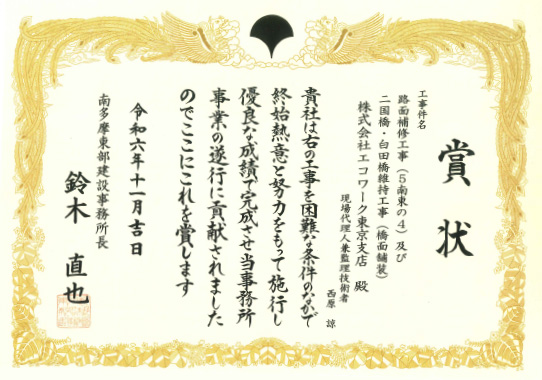 賞状
工事件名
路面補修工事（５南東の４）及び
二国橋・白田橋維持工事（橋面舗装）
株式会社エコワーク東京支店 殿
現場代理人兼監理技術者
西原 諒
貴社は右の工事を困難な条件のなかで
終始熱意と努力をもって施行し
優良な成績で完成させ当事務所
事業の遂行に貢献されました
のでここにこれを賞します
令和六年十一月吉日
南多摩東部建設事務所長
鈴木 直也